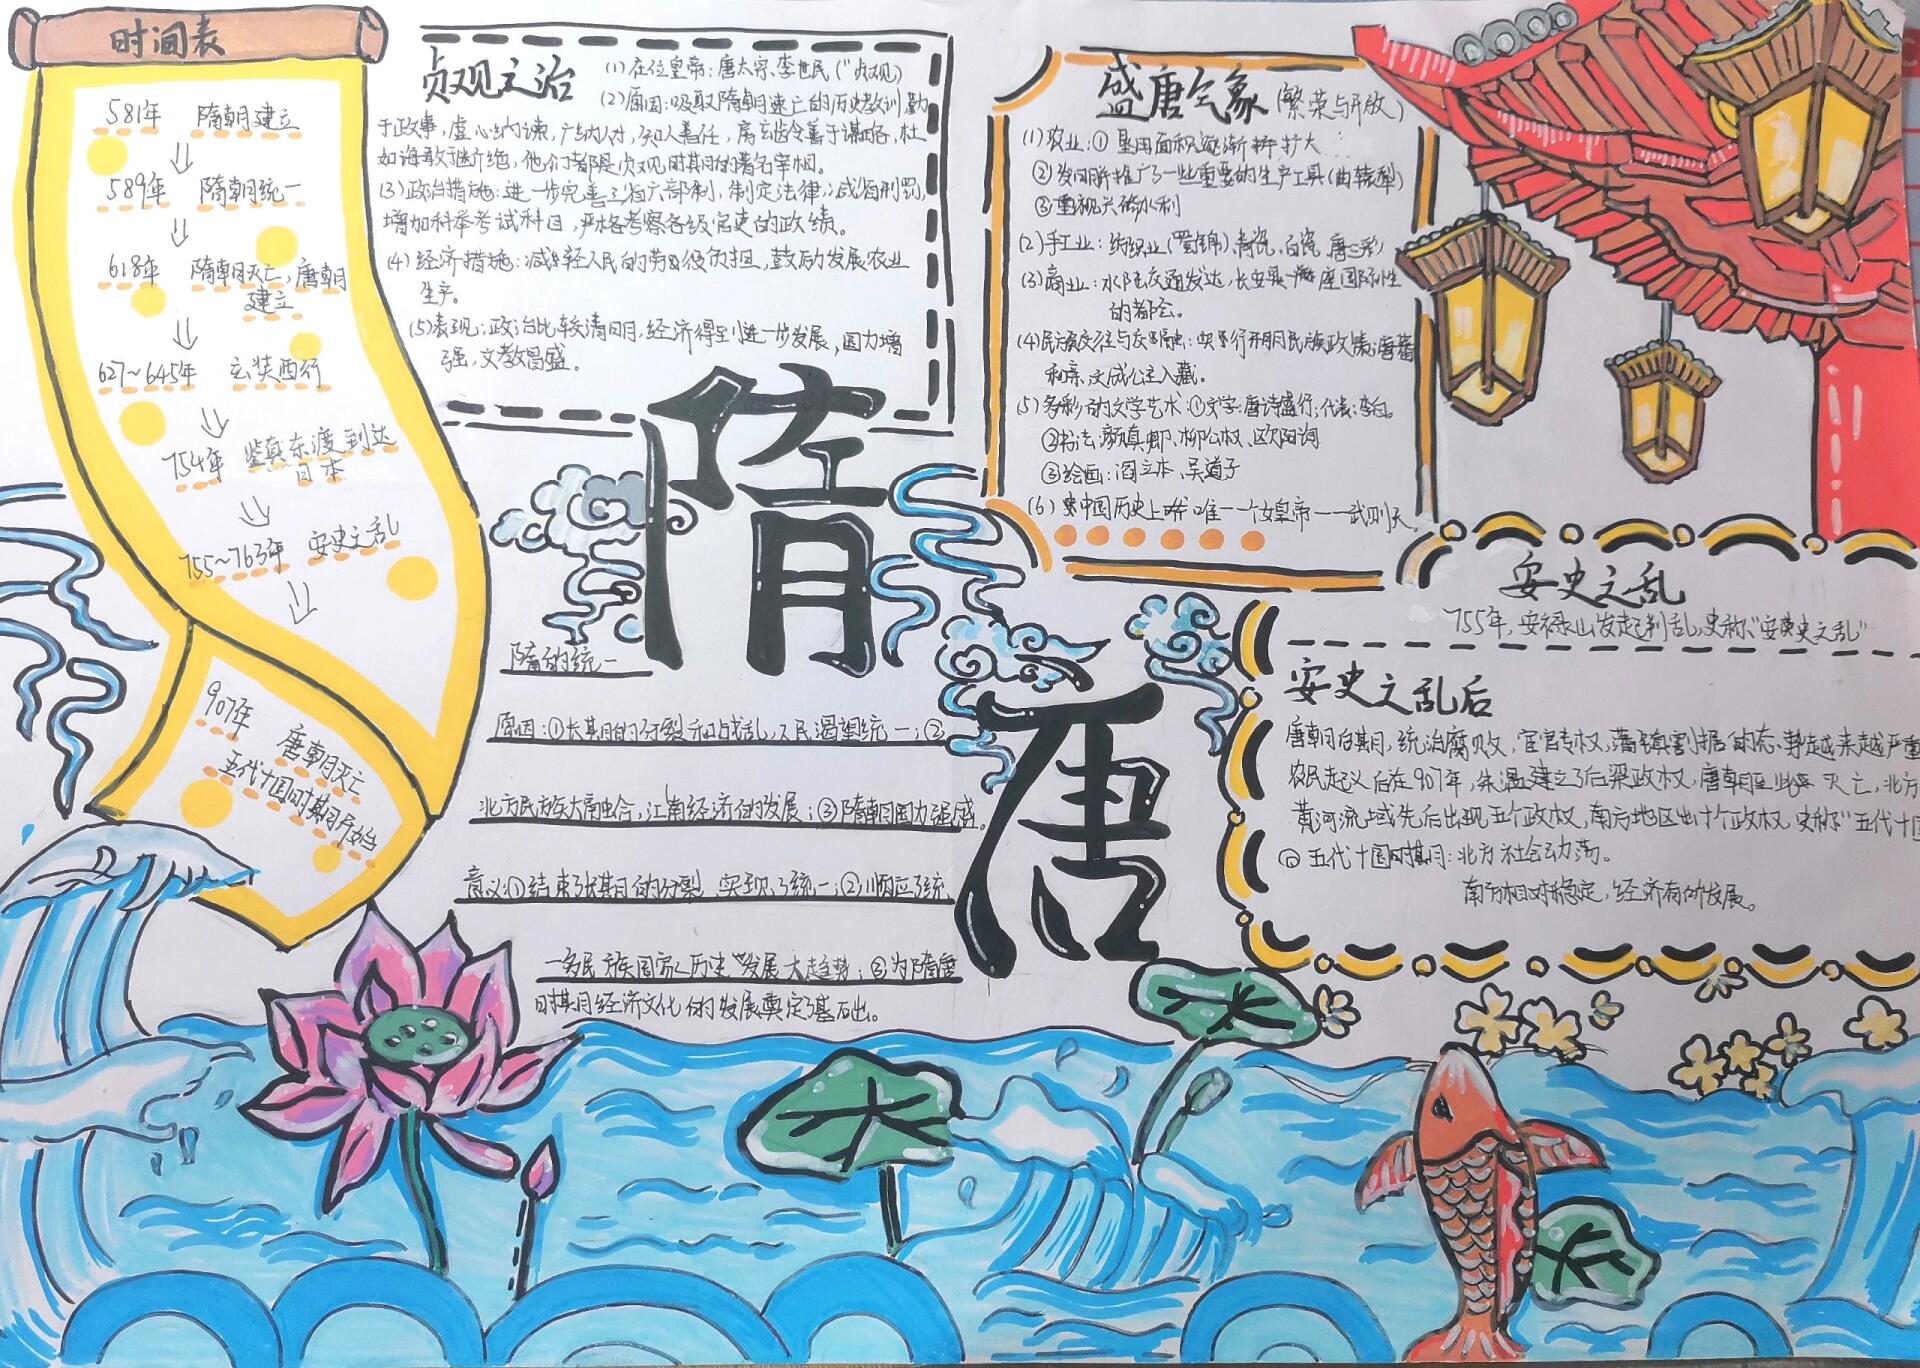 时间表
581年 隋朝建立
589年 隋朝统一
618年 隋朝灭亡,唐朝
建立
627~645年 玄奘西行
754年 鉴真东渡到达
日本
755~763年 安史之乱
907年 唐朝灭亡
五代十国时期开始
贞观之治 (1)在位皇帝:唐太宗、李世民("贞观)
(2)原因:吸取隋朝速亡的历史教训,勤
于政事,虚心纳谏,广纳人才,知人善任,房玄龄善于谋略,杜
如晦敢于断绝,他们都是贞观时期的著名宰相。
(3)政治措施:进一步完善三省六部制,制定法律,减省刑罚,
增加科举考试科目,严格考察各级官吏的政绩。
(4)经济措施:减轻人民的劳役负担,鼓励发展农业
生产。
(5)表现:政治比较清明,经济得到进一步发展,国力增
强,文教昌盛。
隋
唐
隋的统一
原因:①长期的分裂和战乱,人民渴望统一;②
北方民族大融合,江南经济的发展;③隋朝国力强盛。
意义:①结束了长期的分裂,实现了统一;②顺应了统
一多民族国家历史发展大趋势;③为隋唐
时期经济文化的发展奠定了基础。
盛唐气象(繁荣与开放)
(1)农业:①垦田面积逐渐扩大
②发明并推广了一些重要的生产工具(曲辕犁)
③重视兴修水利
(2)手工业:纺织业(蜀锦)、青瓷、白瓷、唐三彩
(3)商业:水陆交通发达,长安是一座国际性
的都会。
(4)民族交往与交融:实行开明民族政策;唐蕃
和亲、文成公主入藏。
(5)多彩的文学艺术:①文字:唐诗盛行;代表:李白。
②书法:颜真卿、柳公权、欧阳询
③绘画:阎立本、吴道子
(6)中国历史上唯一一个女皇帝——武则天。
安史之乱
755年,安禄山发起判乱,史称"安史之乱"
安史之乱后
唐朝后期,统治腐败,宦官专权,藩镇割据的态势越来越严重
农民起义后在907年,朱温建立了后梁政权,唐朝至此灭亡,北方
黄河流域先后出现五个政权,南方地区出十个政权,史称"五代十国
①五代十国时期:北方社会动荡。
南方相对稳定,经济有所发展。